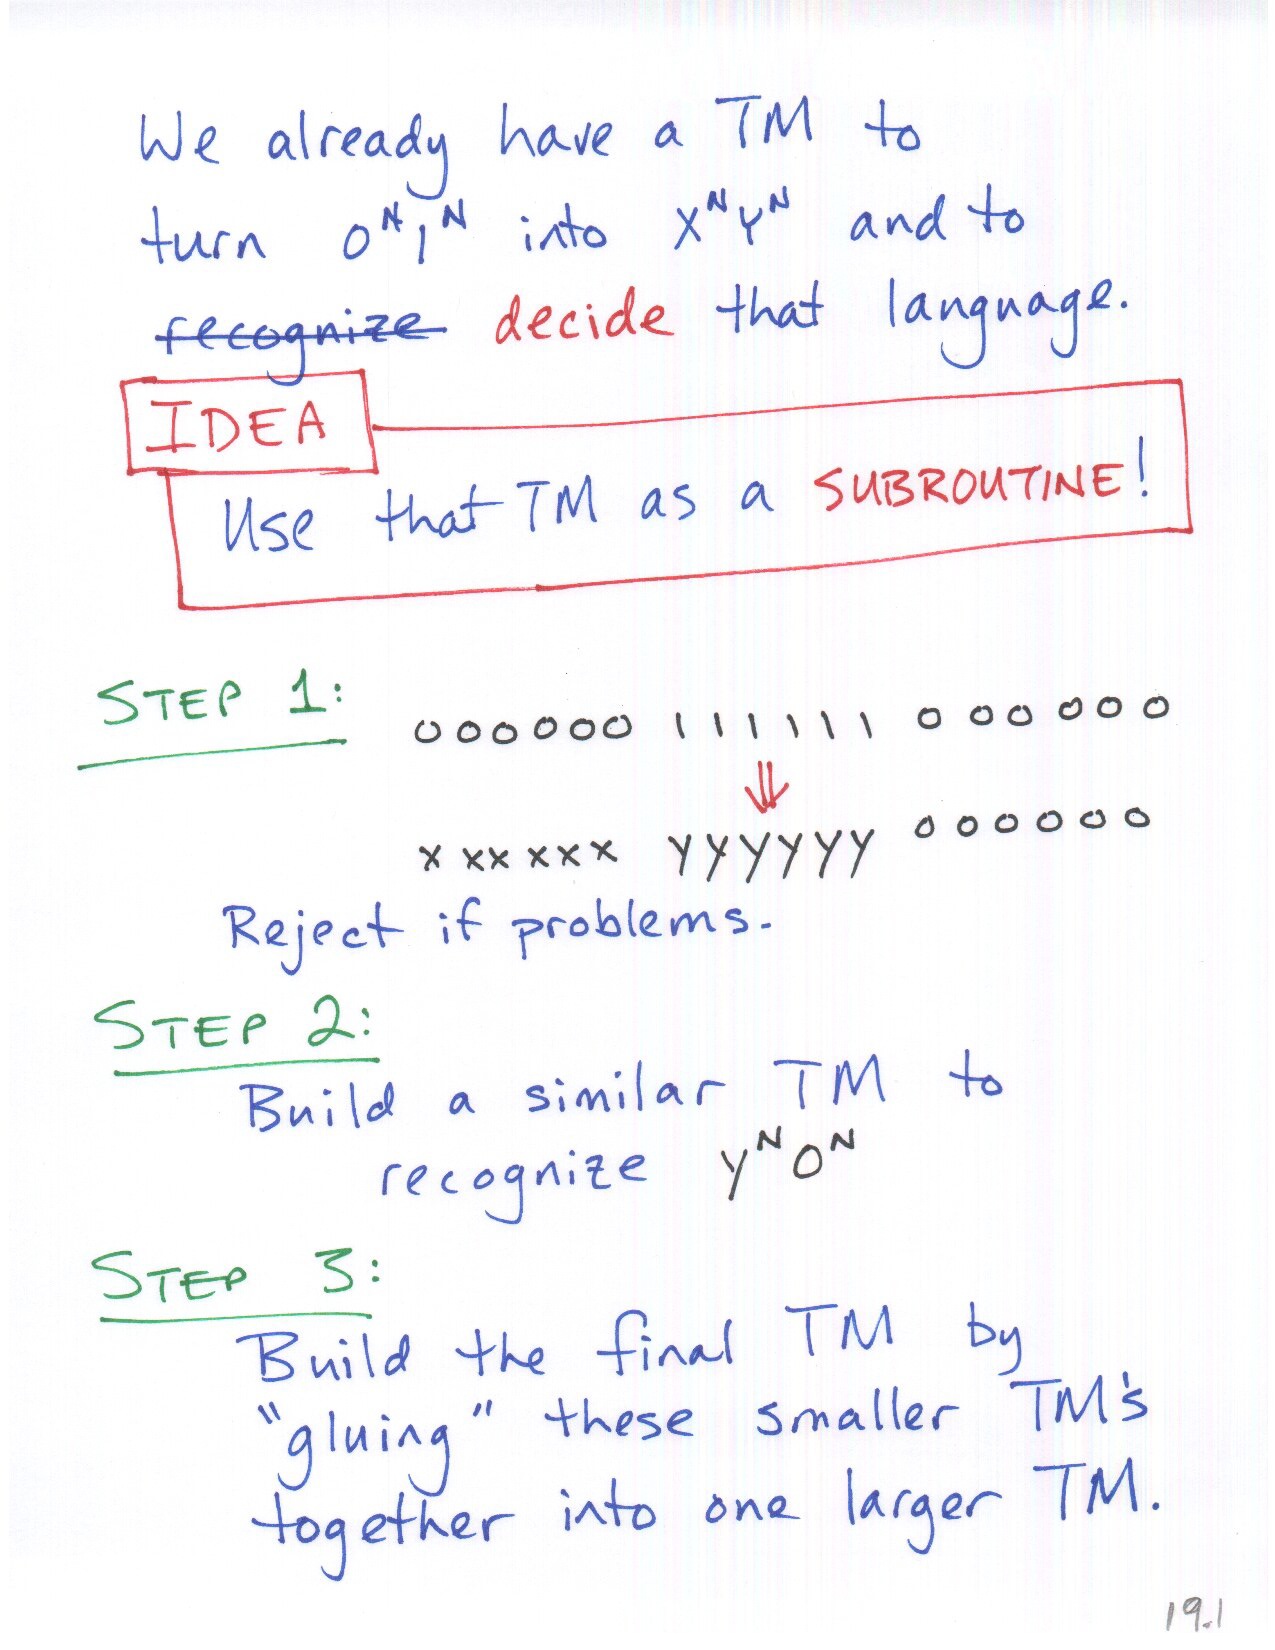 We already have a TM to
turn 0ᴺ1ᴺ into Xᴺyᴺ and to
~~recognize~~ decide that language.
IDEA
Use that TM as a SUBROUTINE!
STEP 1:
000000 111111 000000
⇓
xxxxxx yyyyyy 000000
Reject if problems.
STEP 2:
Build a similar TM to
recognize yᴺ0ᴺ
STEP 3:
Build the final TM by
"gluing" these smaller TM's
together into one larger TM.
19.1